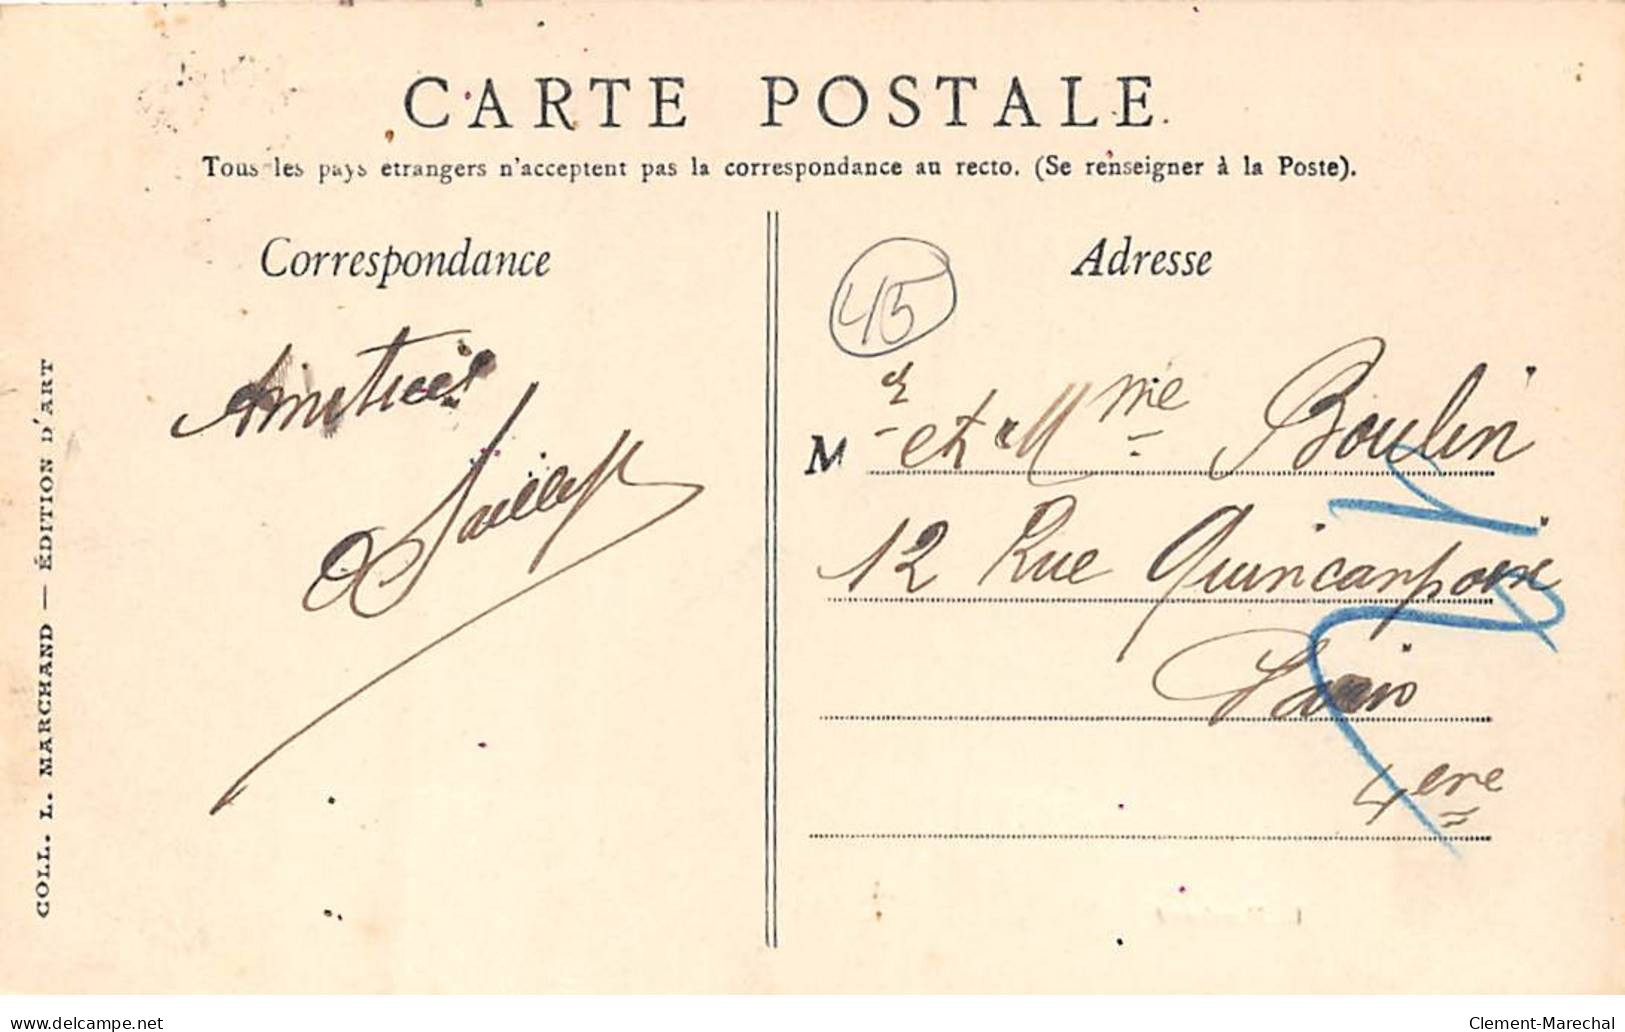 CARTE POSTALE.
Tous les pays etrangers n'acceptent pas la correspondance au recto. (Se renseigner à la Poste).
Correspondance
Adresse
45
Amitiés
M r et Mme Boulin
12 Rue Quincampoix
Paris
4ere
COLL. L. MARCHAND — ÉDITION D'ART
delcampe.net
Clement-Marechal